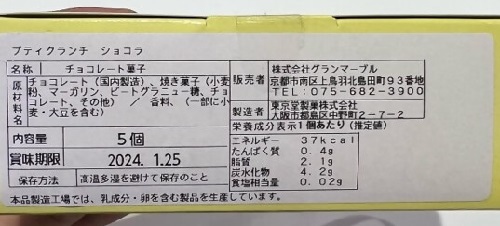 プティクランチ ショコラ
名称 チョコレート菓子
原材料名 チョコレート（国内製造）、焼き菓子（小麦粉、マーガリン、ビートグラニュー糖、チョコレート、その他）／香料、（一部に小麦・大豆を含む）
内容量 5個
賞味期限 2024. 1.25
保存方法 高温多湿を避けて保存のこと
販売者 株式会社グランマーブル
京都市南区上鳥羽北島田町93番地
TEL：075-682-3900
製造者 東京堂製菓株式会社
大阪市都島区中野町2-7-2
栄養成分表示1個あたり（推定値）
エネルギー 37kcal
たんぱく質 0.4g
脂質 2.1g
炭水化物 4.2g
食塩相当量 0.02g
本品製造工場では、乳成分・卵を含む製品を生産しています。